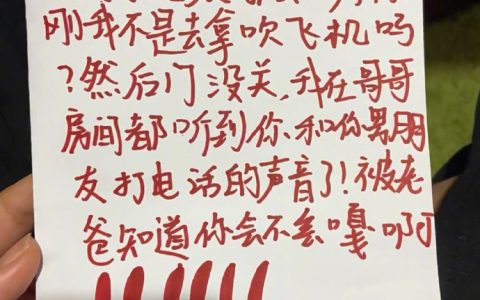 刚我不是去拿吹飞机吗
?然后门没关,我在哥哥
房间都听到你、和你男朋
友打电话的声音了!被老
爸知道你会不会嘎啊
!!!!!!